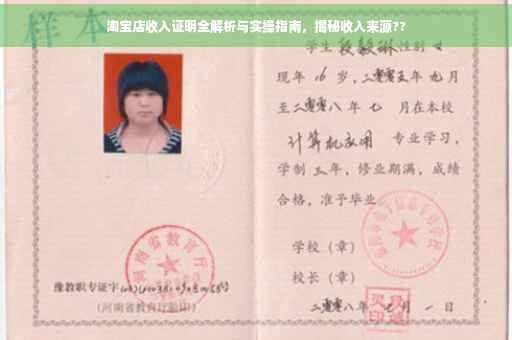 淘宝店收入证明全解析与实操指南，揭秘收入来源??
样本
学生 段毅琳 性别 女
现年 16 岁，二零零五年 九月
至二零零八年 七 月在本校
计算机应用 专业学习，
学制 三 年，修业期满，成绩
合格，准予毕业
学校（章）
校长（章）
二零零八年 七 月 一 日
河南省教育厅
豫教职专证字
（河南省教育厅验印）